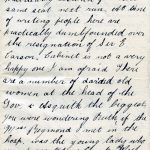 same seat next run. lot sent
of writing people here are
practically dumbfounded over
the resignation of Sir E
Carson. Cabinet is not a very
happy one I am afraid. There
are a number of doddering old
women at the head of the
Gov. & Asquith the biggest.
you were wondering Ruth if the
Miss Redmond I met in the
hosp. was the young lady who